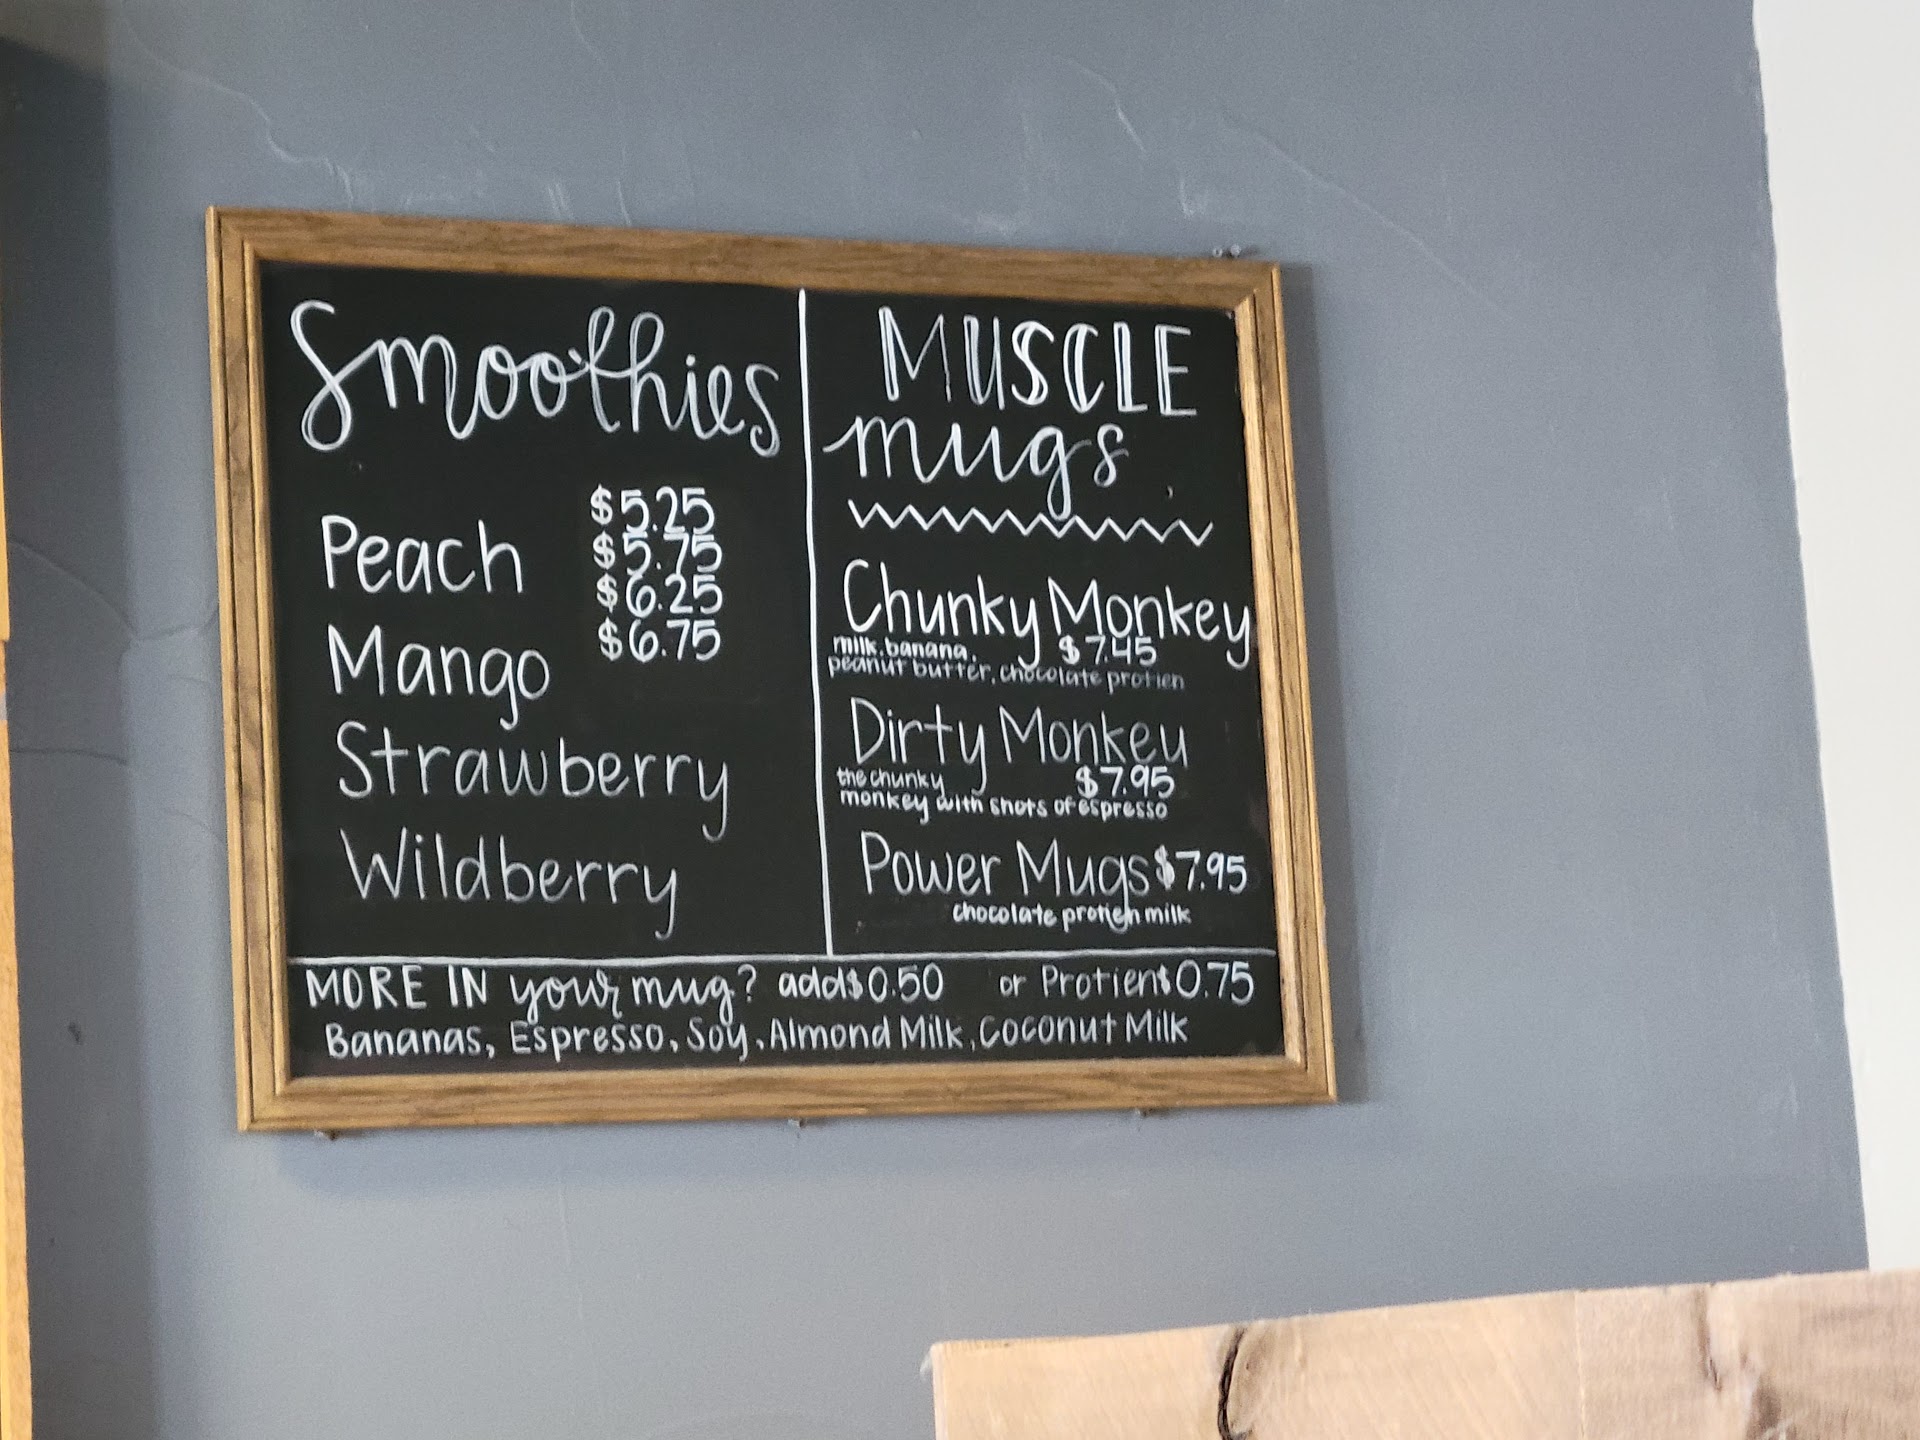 Smoothies
$5.25
Peach
$5.75
$6.25
Mango
$6.75
Strawberry
Wildberry
MUSCLE
mugs
Chunky Monkey
milk.banana. $7.45
peanut butter, chocolate protien
Dirty Monkey
the chunky $7.95
monkey with shots of espresso
Power Mugs $7.95
chocolate protien milk
MORE IN your mug? add $0.50 or Protien $0.75
Bananas, Espresso, Soy, Almond Milk, Coconut Milk